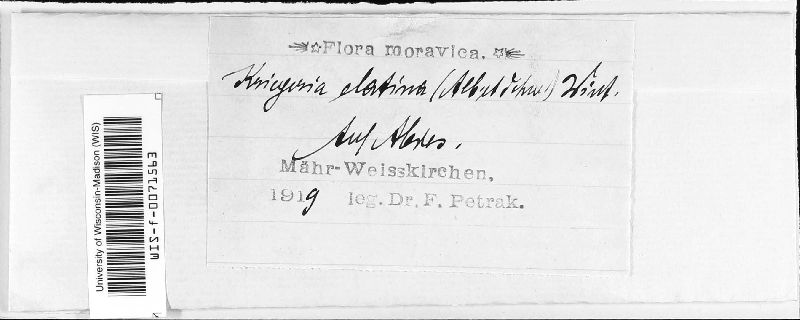 Flora moravica.
Kriegeria elatina (Alb. et Schw.) Wint.
Auf Abies.
Mähr-Weisskirchen,
1919 leg. Dr. F. Petrak.
University of Wisconsin-Madison (WIS)
WIS-f-0071563